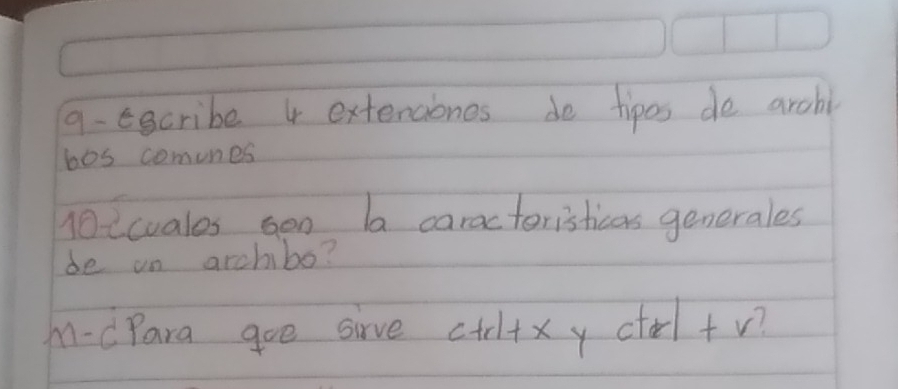 9-escribe 4 extenciones de tipos de archi
bos comunes
10-¿cuales son la caracteristicas generales
de un archibo?
11-¿Para que sirve ctrl+x y ctrl + v?